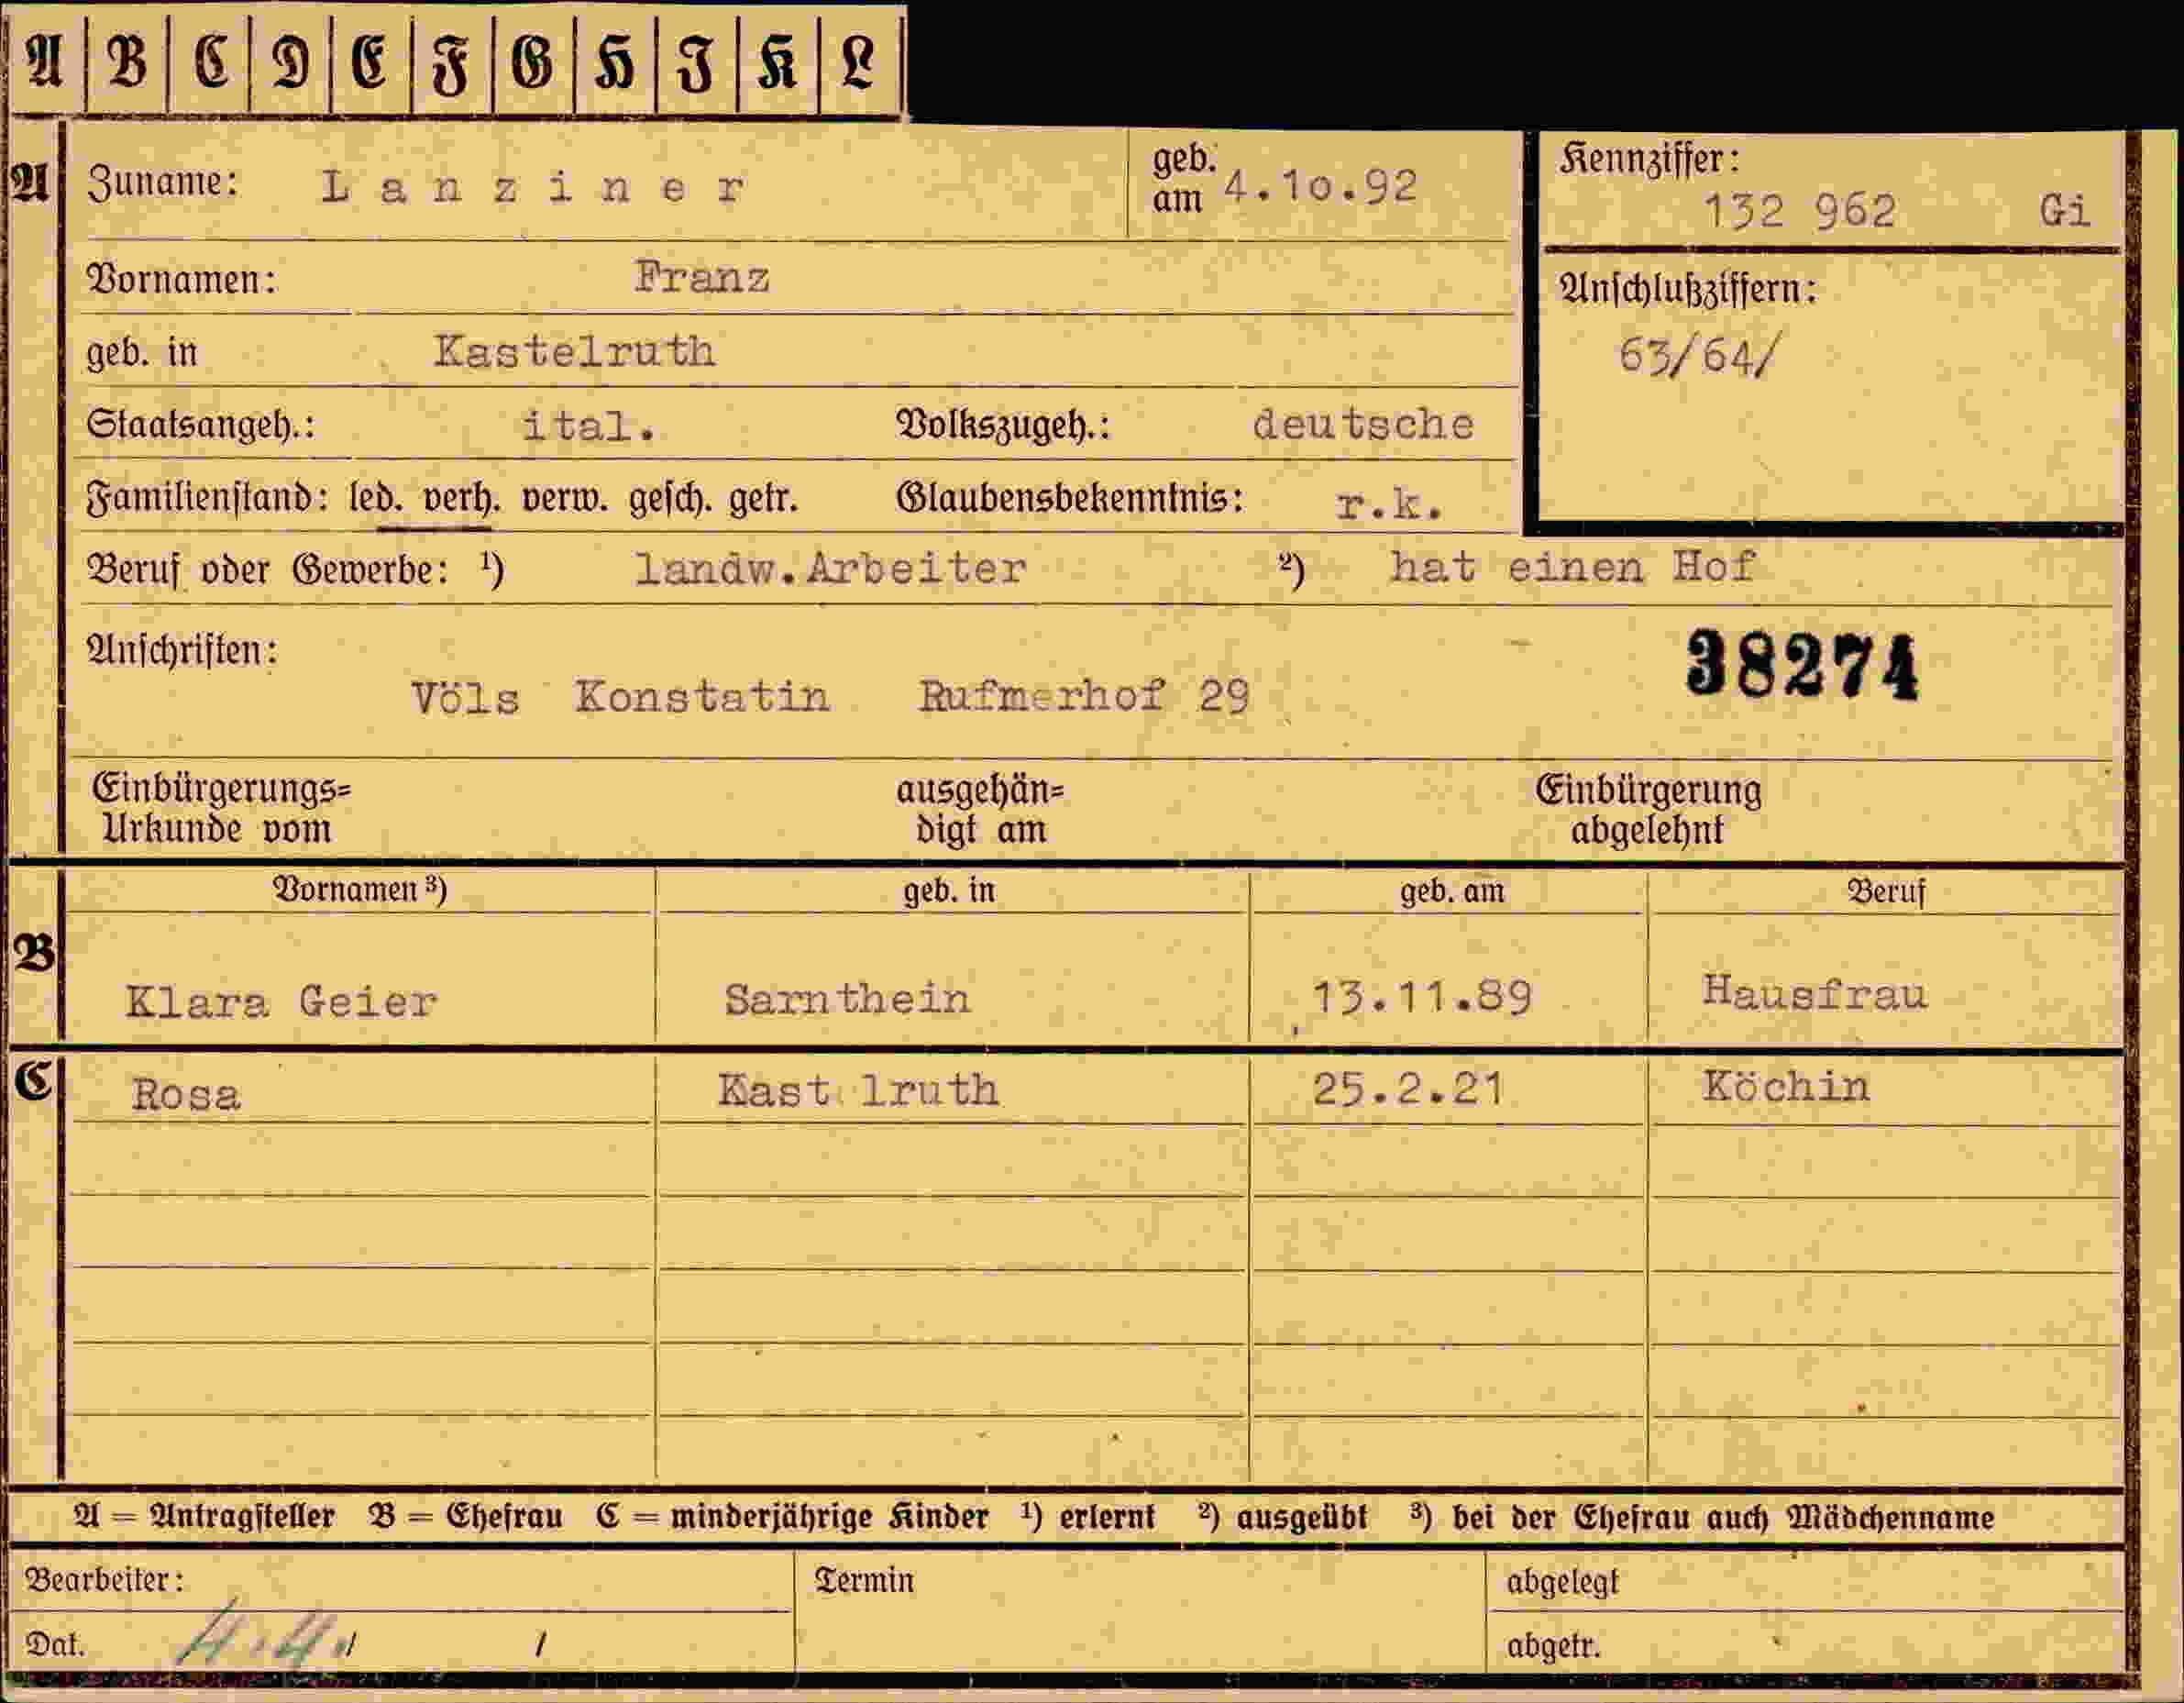 A B C D E F G H I K L
A Zuname: Lanziner geb. am 4.10.92 Kennziffer: 132 962 Gi
Vornamen: Franz Anschlußziffern:
geb. in Kastelruth 63/64/
Staatsangeh.: ital. Volkszugeh.: deutsche
Familienstand: led. verh. verw. gesch. getr. Glaubensbekenntnis: r.k.
Beruf oder Gewerbe: ¹) landw.Arbeiter ²) hat einen Hof
Anschriften: 38274
Völs Konstatin Rufmerhof 29
Einbürgerungs= ausgehän= Einbürgerung
Urkunde vom digt am abgelehnt
Vornamen ³) geb. in geb. am Beruf
B Klara Geier Sarnthein 13.11.89 Hausfrau
C Rosa Kast lruth 25.2.21 Köchin
A = Antragsteller B = Ehefrau C = minderjährige Kinder ¹) erlernt ²) ausgeübt ³) bei der Ehefrau auch Mädchenname
Bearbeiter: Termin abgelegt
Dat. 4.4. / / abgetr.